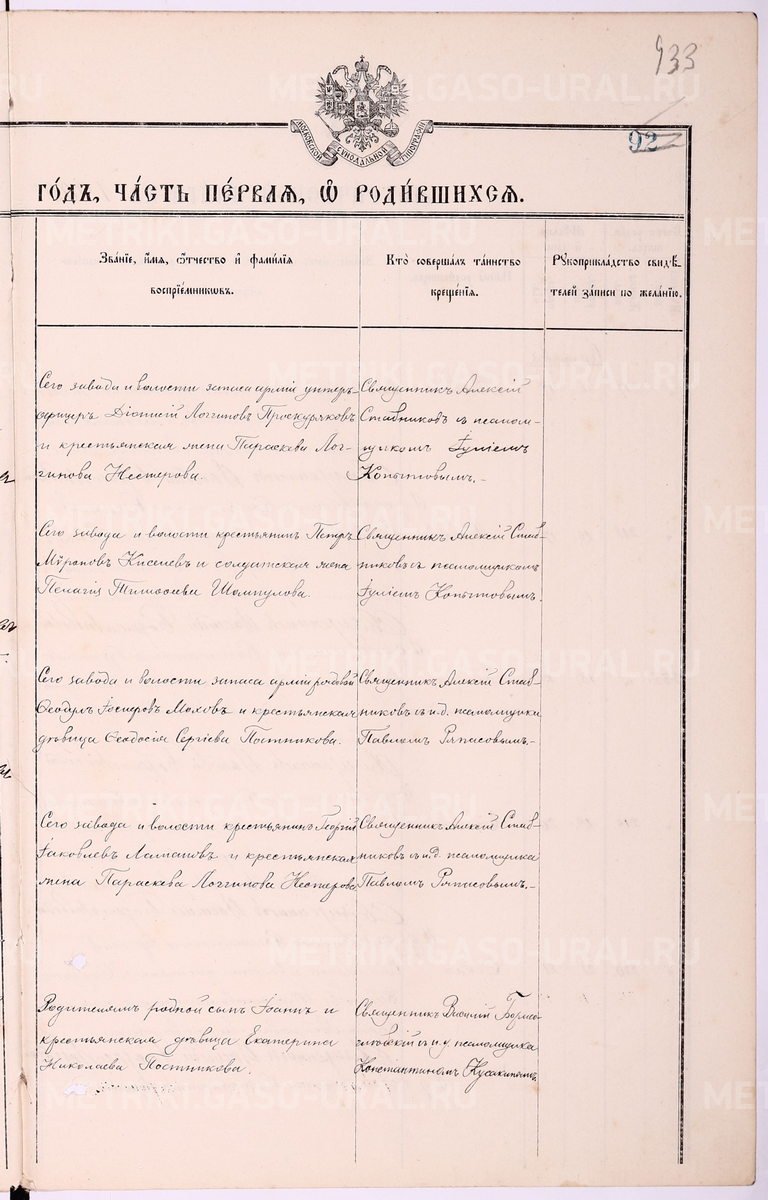 933
92
МОСКОВСКОЙ СѴНОДАЛЬНОЙ ТИПОГРАФІИ
ГО́ДЪ, ЧА́СТЬ ПЕ́РВАѦ, Ѽ РОДИ́ВШИХСѦ.
Зва́нїе, и҆́мѧ, ѻ҆́тчество и҆ фами́лїѧ
воспрїе́мникѡвъ.
Кто̀ соверша́лъ та́инство
креще́нїѧ.
Рꙋкоприкла́дство свидѣ́-
телей за́писи по жела́нїю.
Сего завода и волости запаса арміи унтеръ-
офицеръ Діонисій Логгиновъ Проскуряковъ
и крестьянская жена Параскева Лог-
гинова Нестерова.
Священникъ Алексій
Ставниковъ съ псалом-
щикомъ Іуліемъ
Копытовымъ.-
Сего завода и волости крестьянинъ Петръ
Мѵроновъ Киселевъ и солдатская жена
Пелагія Тимоѳеева Шампурова.
Священникъ Алексій Став-
никовъ съ псаломщикомъ
Іуліемъ Копытовымъ.
Сего завода и волости запаса арміи рядовой
Ѳеодулъ Іосифовъ Моховъ и крестьянская
дѣвица Ѳеодосія Сергіева Постникова.
Священникъ Алексій Став-
никовъ съ и.д. псаломщика
Павломъ Ряпасовымъ.-
Сего завода и волости крестьянинъ Георгій
Іаковлевъ Лопатовъ и крестьянская
жена Параскева Логгинова Нестерова
Священникъ Алексій Став-
никовъ съ и.д. псаломщика
Павломъ Ряпасовымъ.-
Родителямъ родной сынъ Іоаннъ и
крестьянская дѣвица Екатерина
Николаева Постникова.
Священникъ Василій
съ и.д. псаломщика
Константиномъ Кусакинымъ.
METRIKI.GASO-URAL.RU